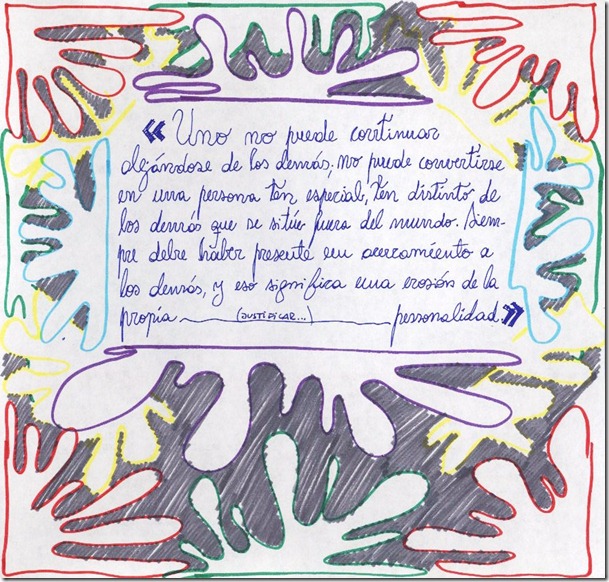 « Uno no puede continuar
alejándose de los demás; no puede convertirse
en una persona tan especial, tan distinto de
los demás que se sitúe fuera del mundo. Siem-
pre debe haber presente un acercamiento a
los demás, y eso significa una erosión de la
propia (JUSTIFICAR...) personalidad.»